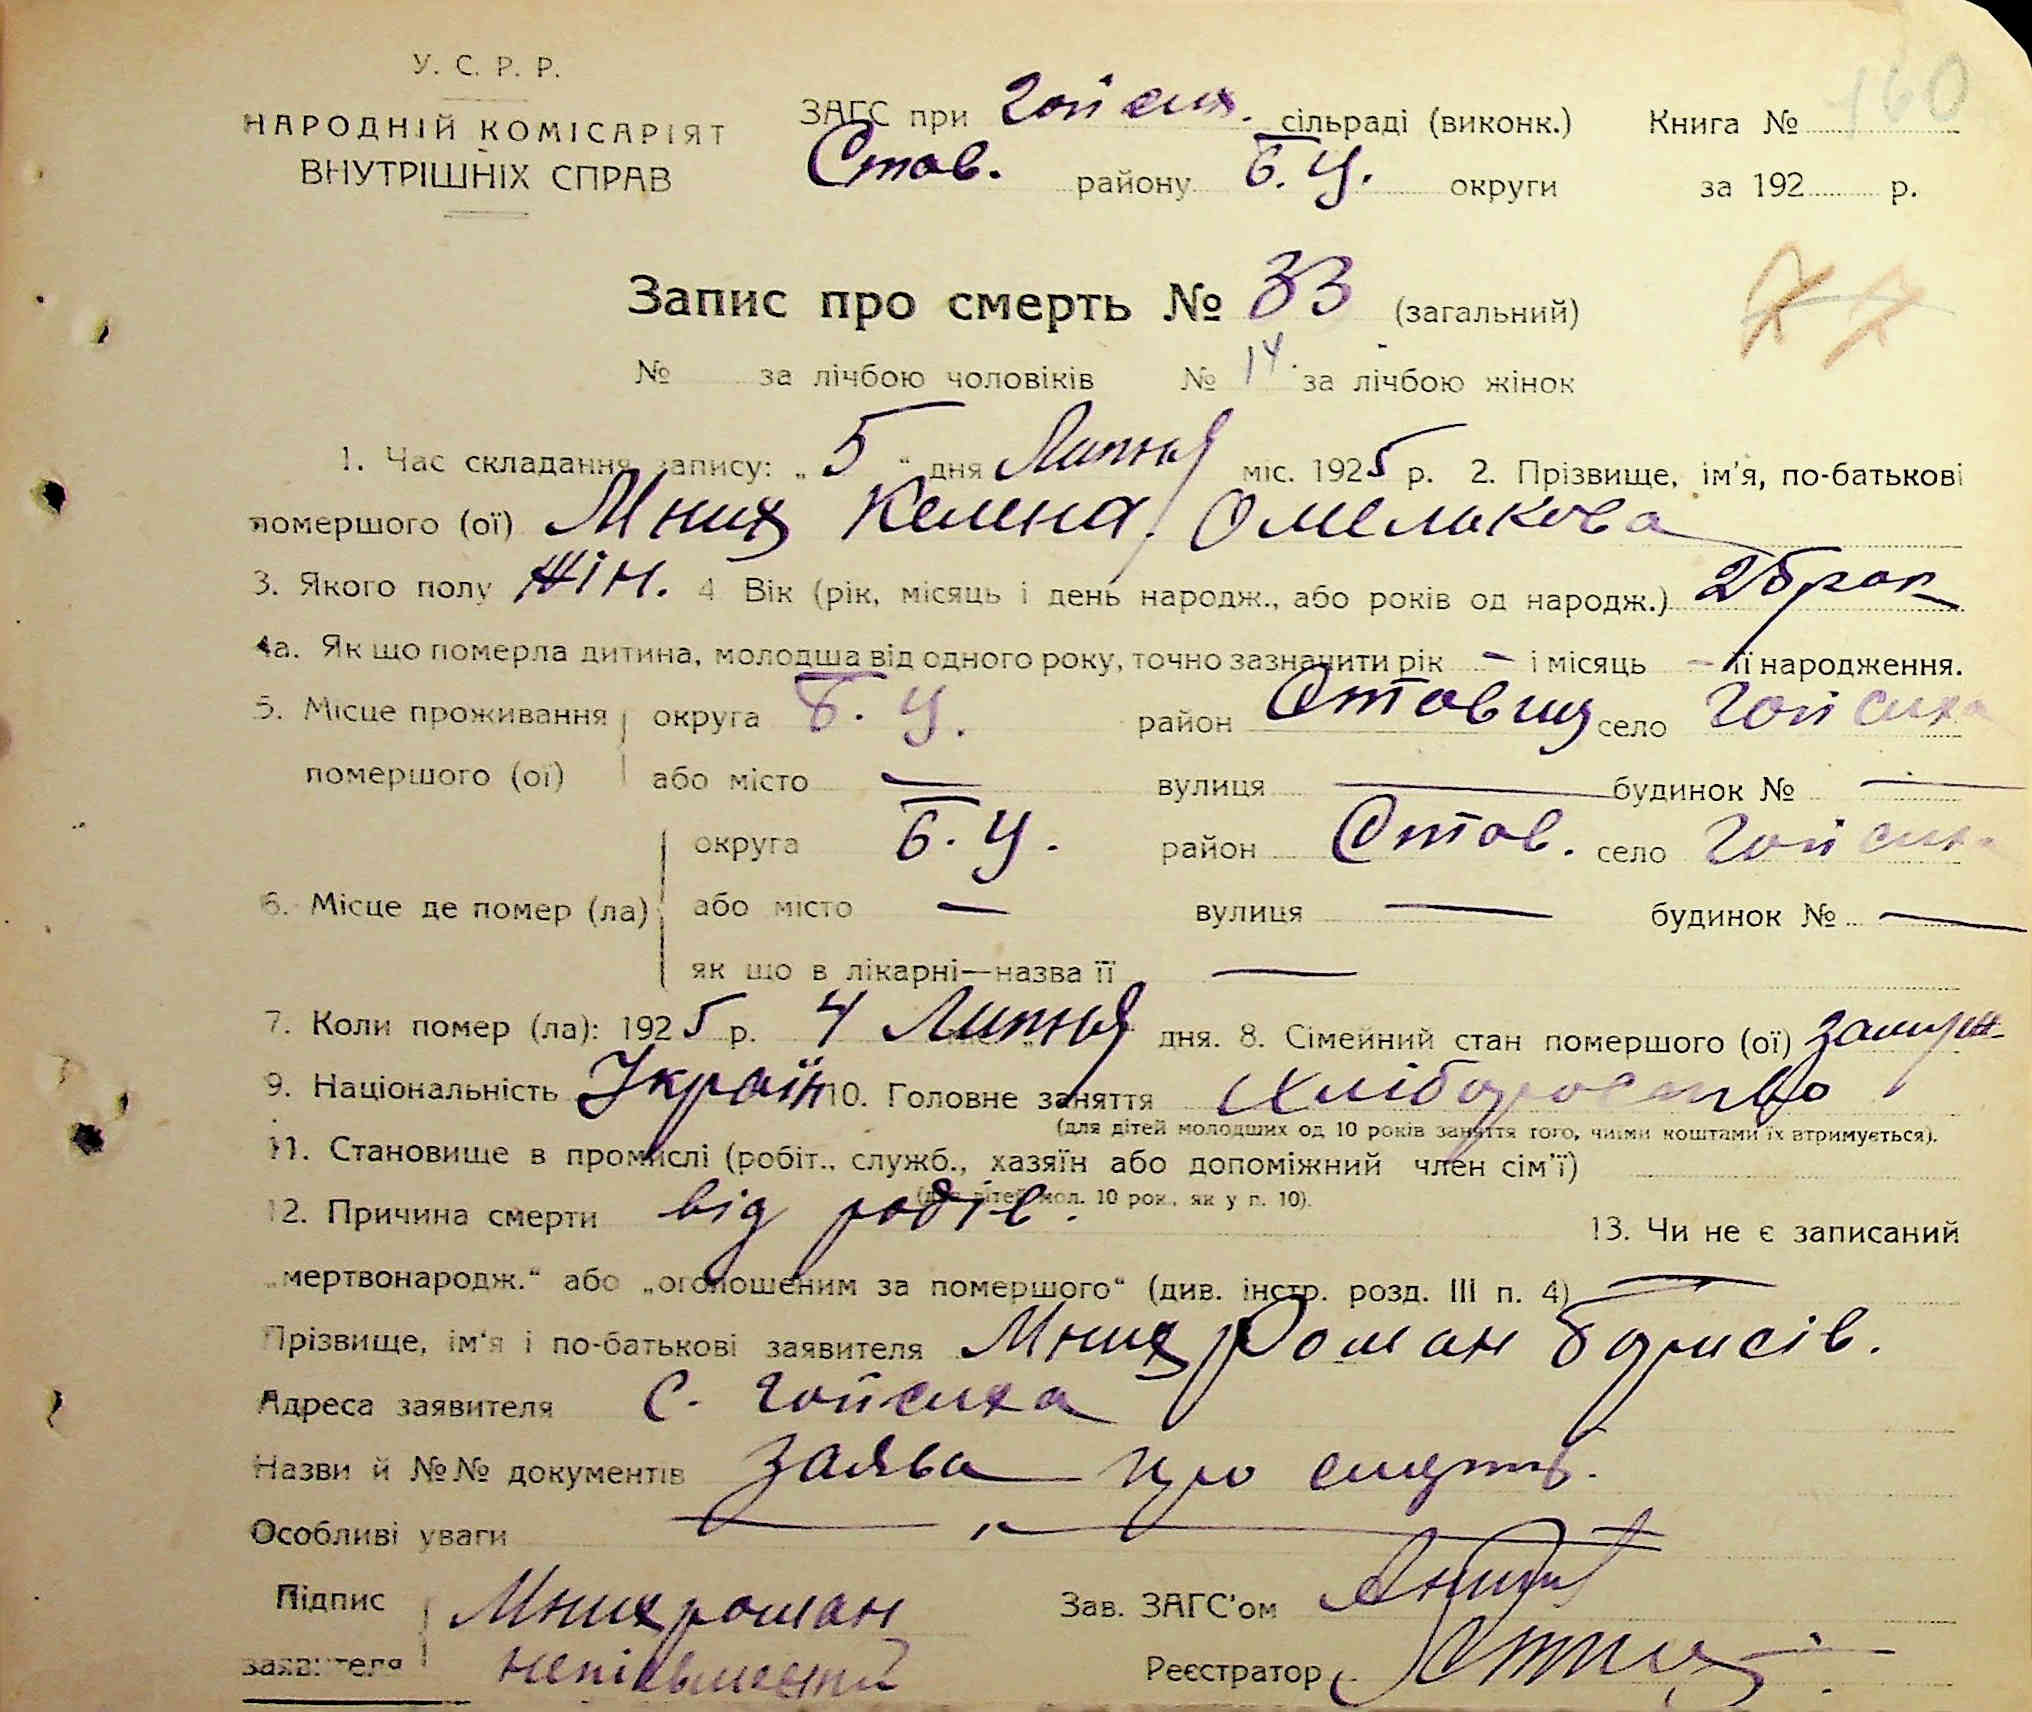 У. С. Р. Р.
НАРОДНІЙ КОМІСАРІЯТ
ВНУТРІШНІХ СПРАВ
ЗАГС при Гойсих. сільраді (виконк.)
Став. району Б. Ц. округи
Книга №
160
за 192 р.
Запис про смерть № 33 (загальний)
№ за лічбою чоловіків № 14. за лічбою жінок
1. Час складання запису: „ 5 “ дня Липня міс. 1925 р. 2. Прізвище, ім'я, по-батькові
помершого (ої) Мних Келена Омелькова
3. Якого полу жін. 4 Вік (рік, місяць і день народж., або років од народж.) 25 рок
4а. Як що померла дитина, молодша від одного року, точно зазначити рік – і місяць – її народження.
5. Місце проживання округа Б. Ц. район Ставищ село Гойсиха
помершого (ої) або місто — вулиця — будинок № —
округа Б. Ц. район Став. село Гойсиха
6. Місце де помер (ла) або місто — вулиця — будинок № —
як що в лікарні—назва її —
7. Коли помер (ла): 1925 р. 4 Липня дня. 8. Сімейний стан помершого (ої) замуж
9. Національність Україн 10. Головне заняття хліборобство
(для дітей молодших од 10 років заняття того, чиїми коштами їх втримується).
11. Становище в промислі (робіт., служб., хазяїн або допоміжний член сім'ї)
(для дітей мол. 10 рок., як у п. 10).
12. Причина смерти від родів. 13. Чи не є записаний
„мертвонародж.“ або „оголошеним за помершого“ (див. інстр. розд. III п. 4) —
Прізвище, ім'я і по-батькові заявителя Мних Роман Борисів.
Адреса заявителя С. Гойсиха
Назви й №№ документів Заява про смерть.
Особливі уваги —
Підпис Мних роман Зав. ЗАГС'ом
заявителя непісьмений Реєстратор